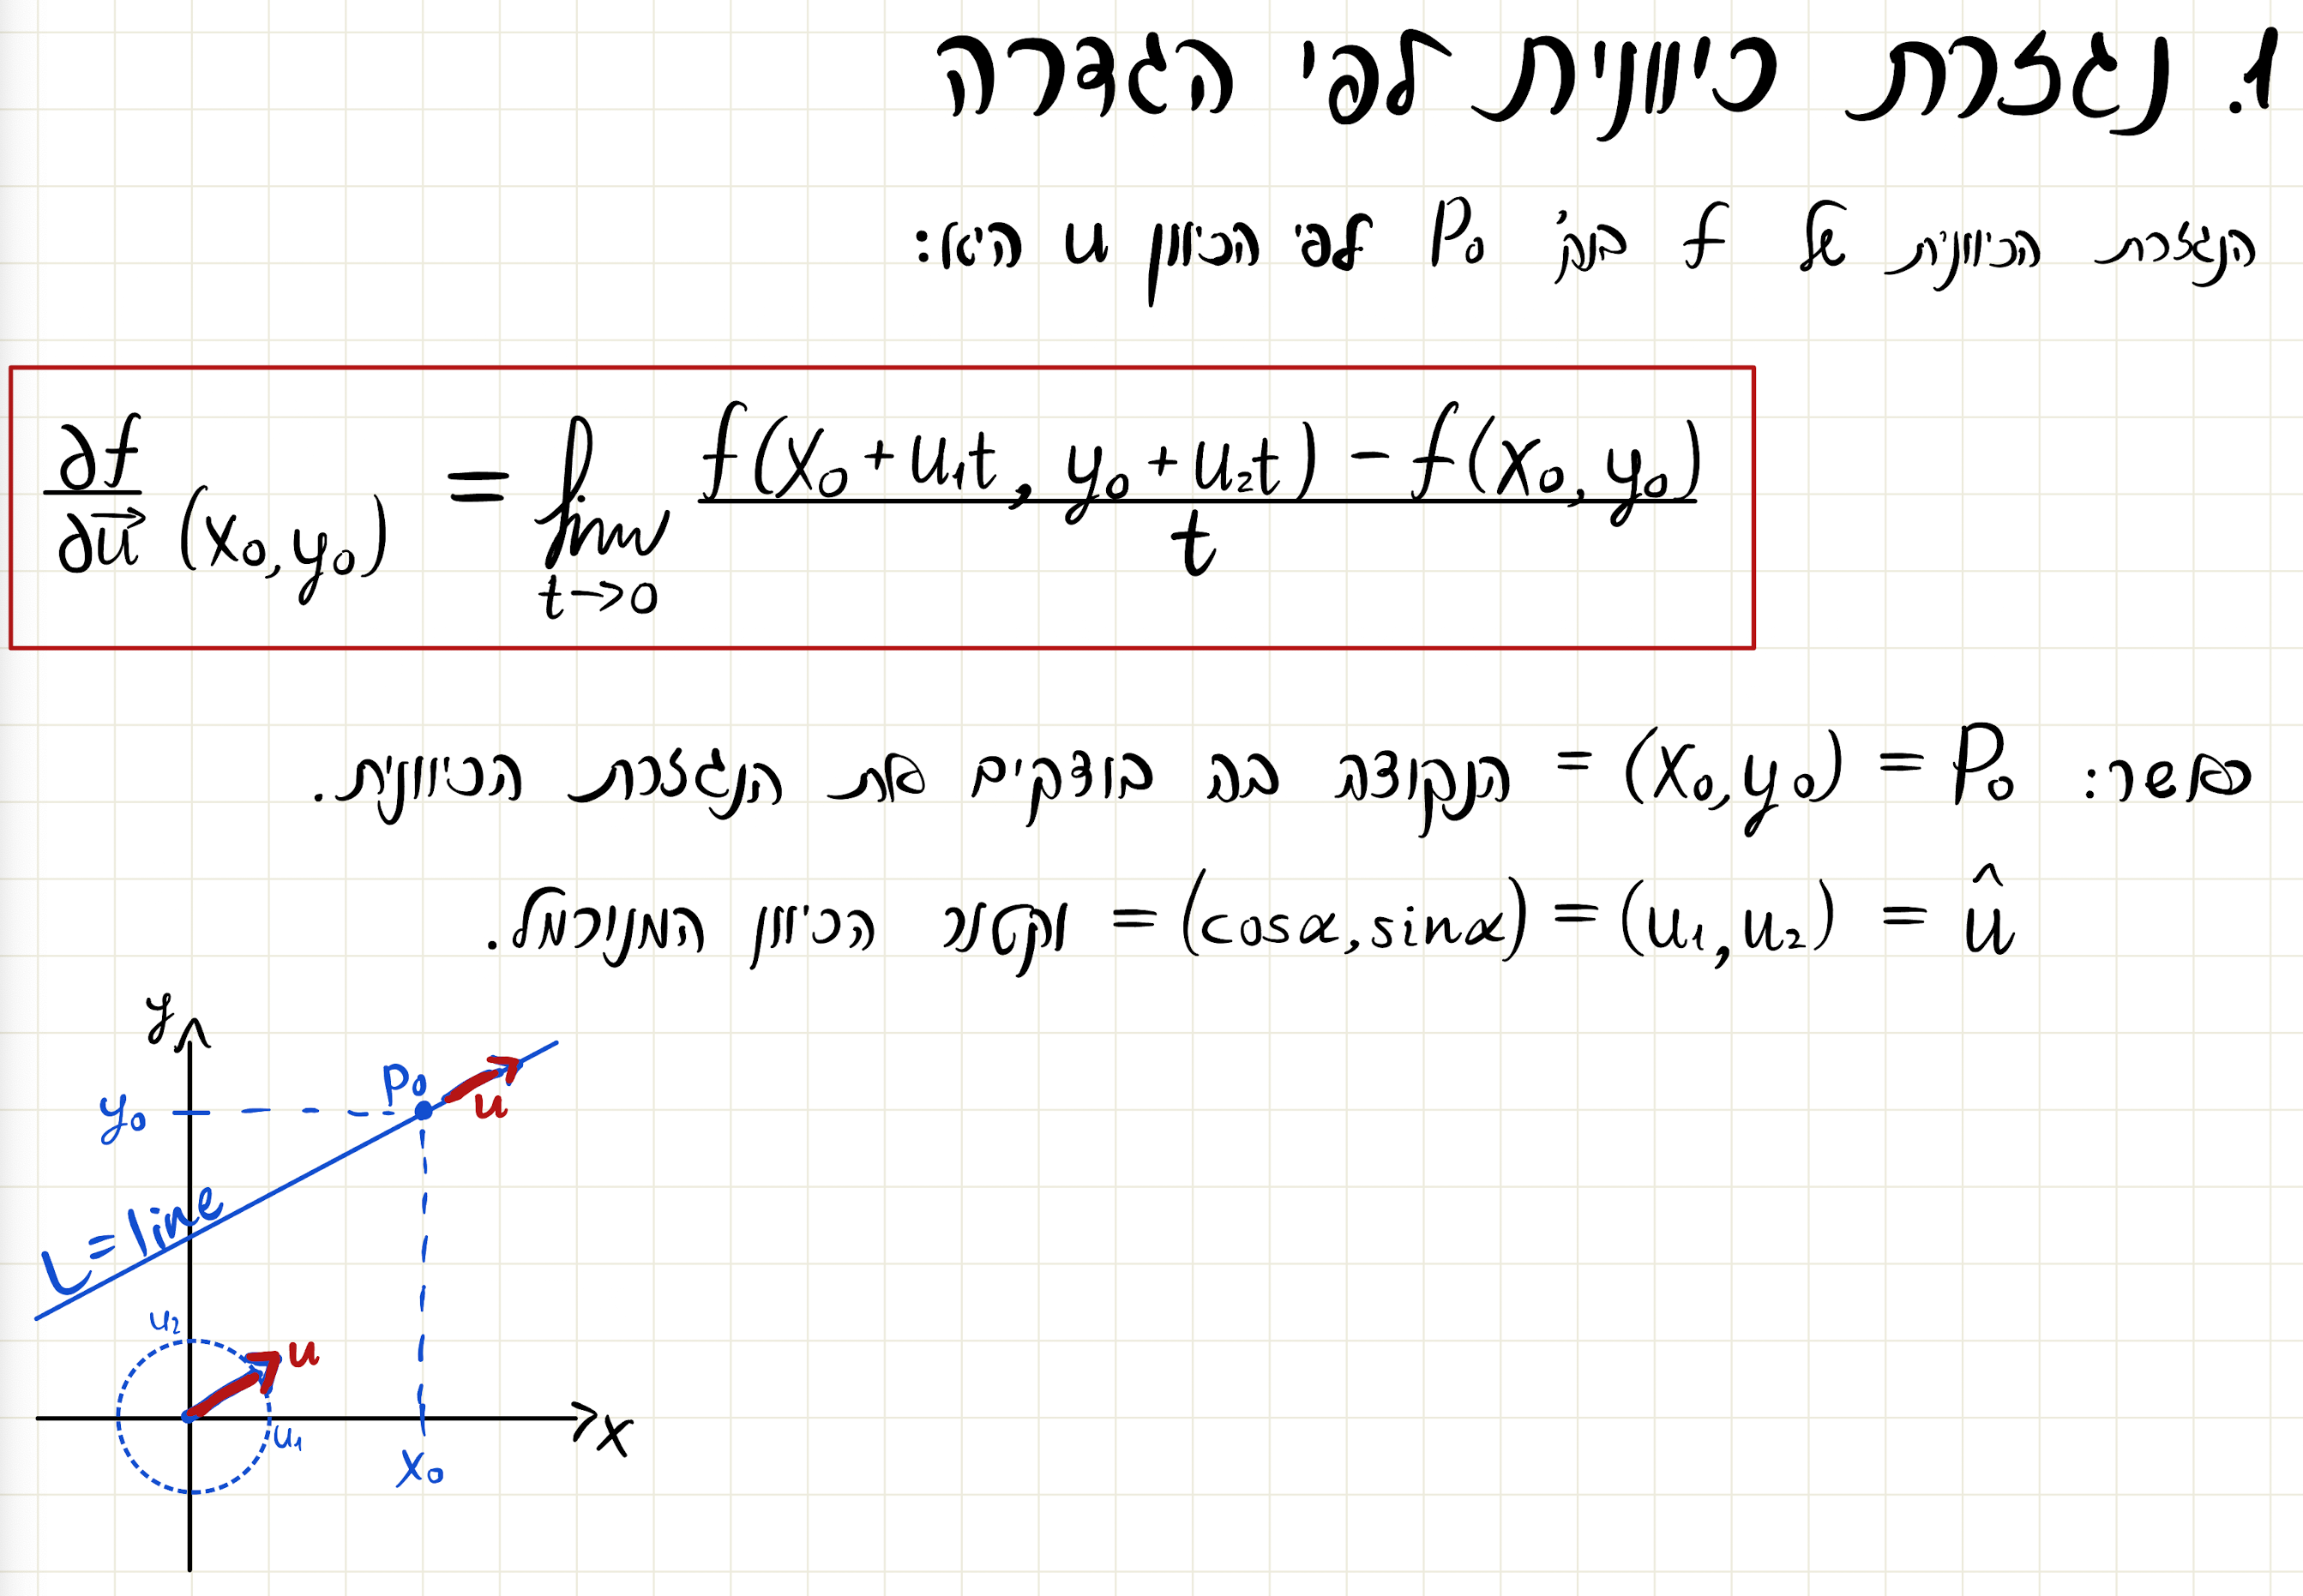 1. נגזרת כיוונית לפי הגדרה
הנגזרת הכיוונית של f בנק' P₀ לפי הכיוון u היא:
∂f/∂u⃗ (x₀,y₀) = lim t→0 (f(x₀+u₁t, y₀+u₂t) - f(x₀,y₀))/t
כאשר: P₀ = (x₀,y₀) = הנקודה בה בודקים את הנגזרת הכיוונית.
û = (u₁,u₂) = (cosα,sinα) = וקטור הכיוון המנורמל.
y
P₀
u
y₀
L=line
u₂
u
u₁
x
x₀